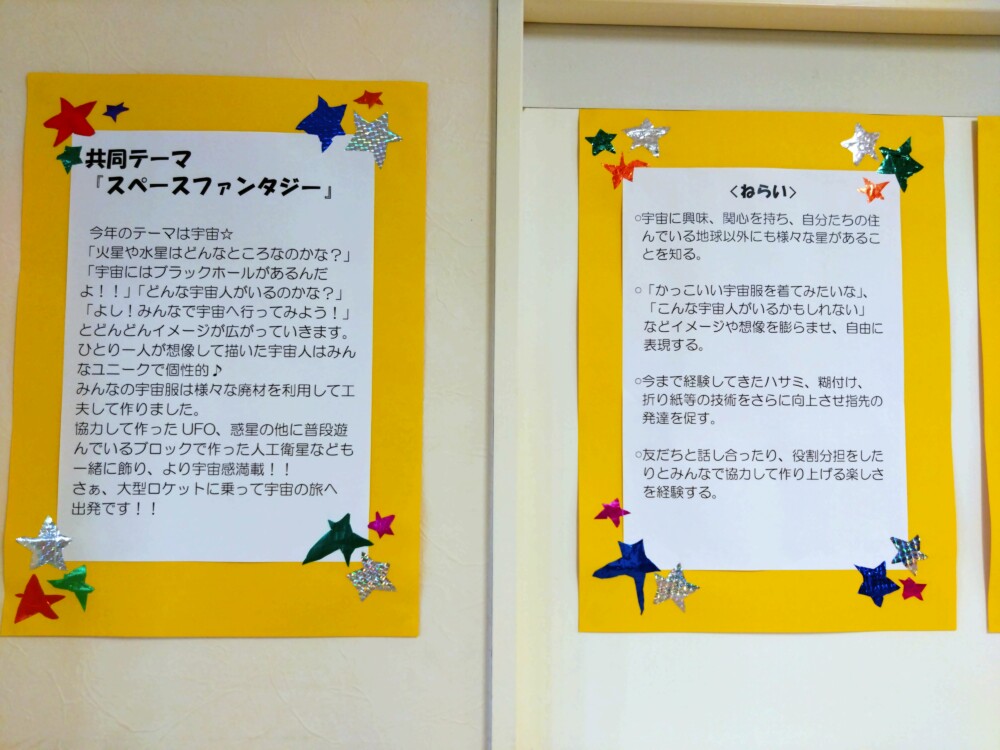 共同テーマ
『スペースファンタジー』
今年のテーマは宇宙☆
「火星や水星はどんなところなのかな？」
「宇宙にはブラックホールがあるんだ
よ！！」「どんな宇宙人がいるのかな？」
「よし！みんなで宇宙へ行ってみよう！」
とどんどんイメージが広がっていきます。
ひとり一人が想像して描いた宇宙人はみん
なユニークで個性的♪
みんなの宇宙服は様々な廃材を利用して工
夫して作りました。
協力して作ったUFO、惑星の他に普段遊
んでいるブロックで作った人工衛星なども
一緒に飾り、より宇宙感満載！！
さぁ、大型ロケットに乗って宇宙の旅へ
出発です！！
〈ねらい〉
○宇宙に興味、関心を持ち、自分たちの住
んでいる地球以外にも様々な星があるこ
とを知る。
○「かっこいい宇宙服を着てみたいな」、
「こんな宇宙人がいるかもしれない」
などイメージや想像を膨らませ、自由に
表現する。
○今まで経験してきたハサミ、糊付け、
折り紙等の技術をさらに向上させ指先の
発達を促す。
○友だちと話し合ったり、役割分担をした
りとみんなで協力して作り上げる楽しさ
を経験する。